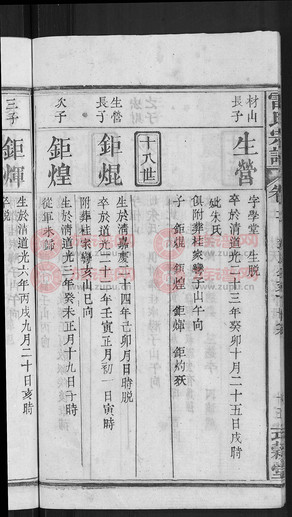 材山
長子
生營
字學堂 生脫
卒於道光二十三年癸卯十月二十五日戌時
妣朱氏
俱附葬桂家灣子山午向
子 鉅焜 鉅煌 鉅煇 鉅灼
十八世
生營
長子
鉅焜
生於清嘉慶二十四年己卯月日時脫
卒於道光二十二年壬寅正月初一日寅時
附葬桂家灣亥山巳向
次子
鉅煌
生於清道光三年癸未正月十九日子時
從軍未歸
三子
鉅煇
生於清道光六年丙戌九月二十日亥時
卒脫